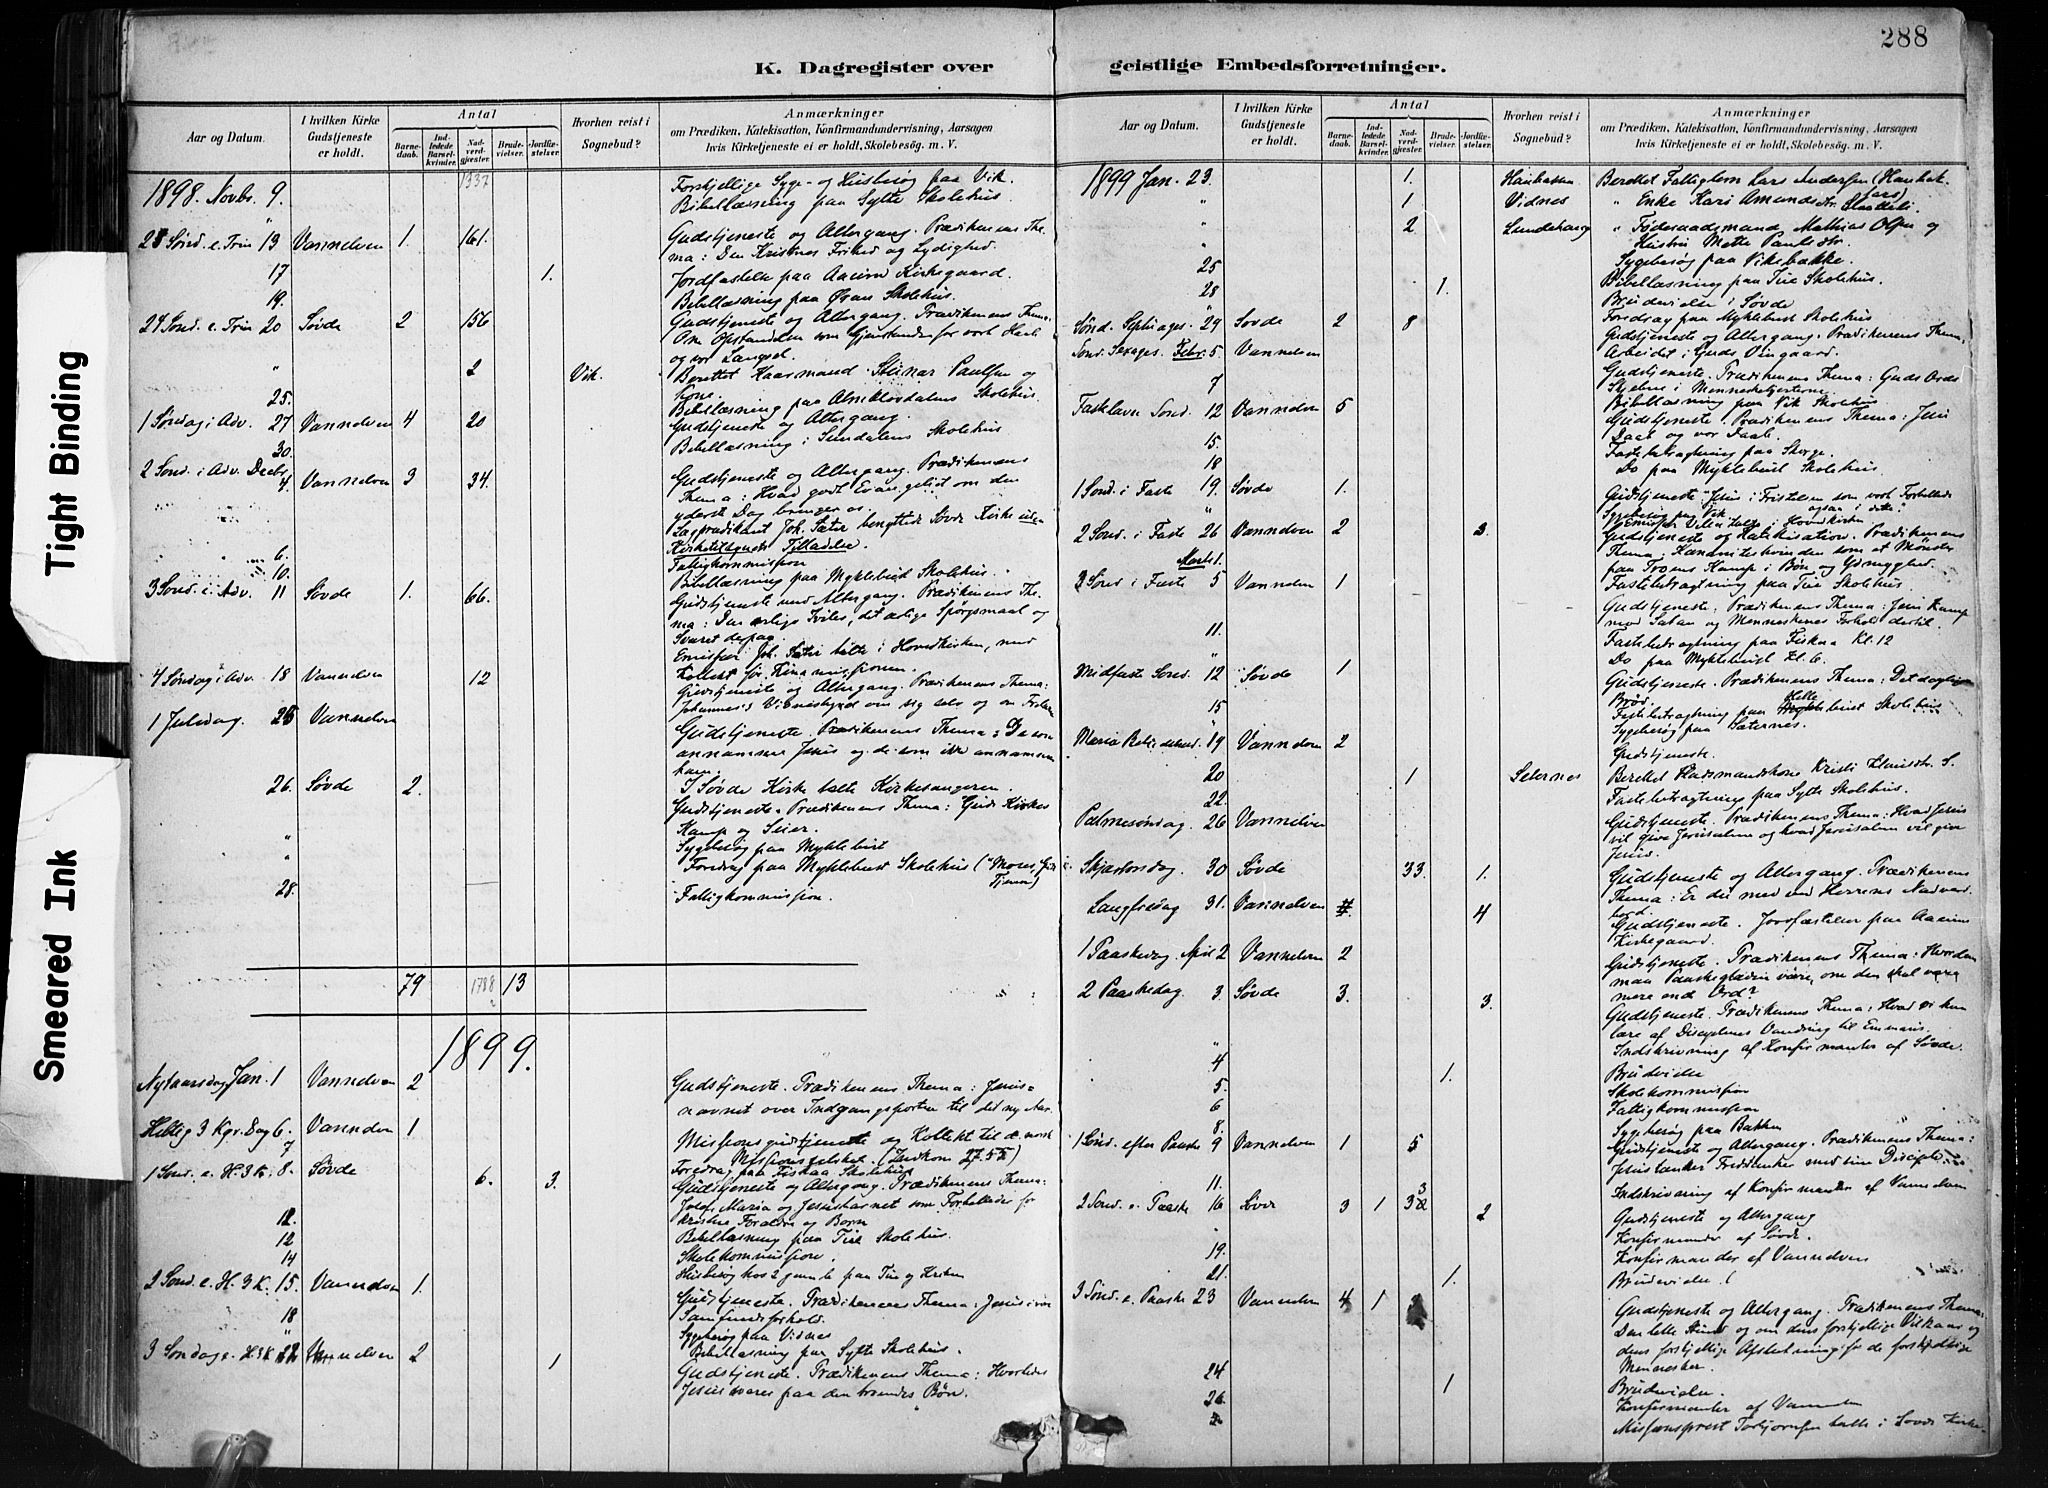 288
K. Dagregister over
geistlige Embedsforretninger.
Tight Binding
Smeared Ink
Aar og Datum.
I hvilken Kirke Gudstjeneste er holdt.
Antal
Barnedaab.
Indledede Barselkvinder.
Nadverdgjæster.
Brudevielser.
Jordfæstelser.
Hvorhen reist i Sognebud?
Anmærkninger
om Prædiken, Katekisation, Konfirmandundervisning, Aarsagen
hvis Kirketjeneste ei er holdt, Skolebesøg. m. V.
1337
1898. Novbr. 9. Forskjellige Syge- og Husbesøg paa Vik.
Bibellæsning paa Sytte Skolehus.
Sønd. e. Trin 13 Vannelven 1. 161. Gudstjeneste og Altergang. Prædikenens The-
ma: Den Kristnes Frihed og Lydighed.
17 1. Jordfæstelse paa Aaeim Kirkegaard.
19. Bibellæsning paa Skolehus.
24 Sønd. e. Trin 20 Søvde 2 156 Gudstjeneste og Altergang. Prædikenens Thema:
Om Opstandelsen som Gjenstand for vort Haab
og vor Længsel.
" 2 Vik. Berettet Kaarmand Steinar Paulsen og
Kone.
25. Bibellæsning paa Almklovdalens Skolehus.
1 Søndag i Adv. 27 Vannelven 4 20 Gudstjeneste og Altergang.
30. Bibellæsning i Sundalens Skolehus
2 Sønd. i Adv. Decbr. 4. Vannelven 3 34. Gudstjeneste og Altergang. Prædikenens
Thema: Hvad godt Evangeliet om den
yderste Dag bringer os.
Lægprædikant Joh. Sæter benyttede Søvde Kirke uden
Kirketilsynets Tilladelse.
6. Fattigkommission
10. Bibellæsning paa Myklebust Skolehus.
3 Sønd. i Adv. 11 Søvde 1. 66. Gudstjeneste med Altergang. Prædikenens The-
ma: Den ærlige Tvilen, det ærlige Spørgsmaal og
Svaret derpaa.
Emissær Joh. Sæter talte i Hovedkirken, med
Kollekt for Kinamissionen.
4 Søndag i Adv. 18 Vannelven 12 Gudstjeneste og Altergang. Prædikenens Thema:
Johannes's Vidnesbyrd om sig selv og om Frelseren
1 Juledag. 25 Vannelven Gudstjeneste. Prædikenens Thema: De som
annammer Jesus og de som ikke annammer
ham.
26. Søvde 2. I Søvde Kirke talte Kirkesangeren.
Gudstjeneste. Prædikenens Thema: Guds Kirkes
Kamp og Seier.
" Sygebesøg paa Myklebust
" Foredrag paa Myklebust Skolehus ("Moses, Guds
Tjener)
28. Fattigkommission.
79 1788 13
1899.
Nytaarsdag Jan. 1 Vannelven 2 Gudstjeneste. Prædikenens Thema: Jesus-
navnet over Indgangsporten til det ny Aar.
Hellig 3 Kgr. Dag 6. Vannelven 1 Missionsgudstjeneste og Kollekt til d. norsk
Missionsselskab. (Indkom 27.55)
7 Foredrag paa Fiskaa Skolehus
1 Sønd. e. H. 3 K. 8. Søvde 6. 3. Gudstjeneste og Altergang. Prædikenens Thema:
Josef, Maria og Jesusbarnet som Forbilleder for
kristne Forældre og Børn
12. Bibellæsning paa Tue Skolehus.
12 Skolekommission.
14 Husbesøg hos 2 gamle paa Tue og
2 Sønd. e. H. 3 K. 15. Vannelven 1. Gudstjeneste. Prædikenens Thema: Jesus i vore
Samfundsforhold.
18 Sygebesøg paa Vidnes
" Bibellæsning paa Sytte Skolehus.
3 Søndag e. H3K 22 Vannelven 2 1 Gudstjeneste. Prædikenens Thema: Hvorledes
Jesus svarer paa den troendes Bøn.
Aar og Datum.
I hvilken Kirke Gudstjeneste er holdt.
Antal
Barnedaab.
Indledede Barselkvinder.
Nadverdgjæster.
Brudevielser.
Jordfæstelser.
Hvorhen reist i Sognebud?
Anmærkninger
om Prædiken, Katekisation, Konfirmandundervisning, Aarsagen
hvis Kirketjeneste ei er holdt, Skolebesøg. m. V.
1899 Jan. 23. 1. Haubakken Berettet Fattiglem Lars Andersen (Haubak-
" 1 Vidnes " Enke Kari Amundsdtr.
" 2 " Føderaadsmand Mathias Olsen og
Hustru Mette Paulsdtr.
Sygebesøg paa Vikebakke.
25 Bibellæsning paa Tue Skolehus.
28 1. Brudevielse i Søvde
" Foredrag paa Myklebust Skolehus
Sønd. Septuages. 29 Søvde 2 8 Gudstjeneste og Altergang. Prædikenens Thema:
Arbeidet i Guds Vingaard.
Sønd. Sexages. Febr. 5. Vannelven Gudstjeneste. Prædikenens Thema: Guds Ords
Skjebne i Menneskehjerterne.
7 Bibellæsning paa Vik Skolehus
Fastelavn Sønd. 12 Vannelven 5 Gudstjeneste. Prædikenens Thema: Jesu
Daab og vor Daab.
15. Fastebetragtning paa Skorge.
18 Do paa Myklebust Skolehus.
1 Sønd. i Faste 19. Søvde 1. Gudstjeneste "Jesus i Fristelsen som vort Forbillede
ogsaa i dette."
" Sygebesøg paa Vik
talte i Hovedkirken
2 Sønd. i Faste 26 Vannelven 2 3. Gudstjeneste og Katekisation. Prædikenens
Thema: Kananiterkvinden som et Mønster
paa Troens Kamp i Bøn og Ydmyghed.
Marts 1. Fastebetragtning paa Tue Skolehus.
3 Sønd i Faste 5 Vannelven 1 Gudstjeneste. Prædikenens Thema: Jesu Kamp
mod Satan og Menneskenes Forhold dertil.
11. Fastebetragtning paa Fiskaa Kl. 12
" Do paa Myklebust Kl. 6.
Midfaste Sønd. 12 Søvde 1 Gudstjeneste. Prædikenens Thema: Det daglige
Brød.
15 Fastebetragtning paa Skolehus
" Sygebesøg paa Sæternes.
Maria Bebudelsesd. 19 Vannelven 2 Gudstjeneste.
20 1 Seternes Berettet Pladsmandskone Kristi Klausdtr. S.
22. Fastebetragtning paa Sytte Skolehus.
Palmesøndag. 26 Vannelven Gudstjeneste. Prædikenens Thema: Hvad Jesus
vil give Jerusalem og hvad Jerusalem vil give
Jesus.
Skjærtorsdag. 30 Søvde 33. 1. Gudstjeneste og Altergang. Prædikenens
Thema: Er du med ved Herrens Nadver-
bord.
Langfredag 31. Vannelven 4 Gudstjeneste. Jordfæstelser paa Aaeim
Kirkegaard.
1 Paaskedag April 2 Vannelven 2 Gudstjeneste. Prædikenens Thema: Hvordan
maa Paaskeglæden være, om den skal være
mere end Ord?
2 Paaskedag. 3. Søvde 3. 3. Gudstjeneste. Prædikenens Thema: Hvad vi kan
lære af Disciplenes Vandring til Emmaus.
" Indskrivning af Konfirmanter af Søvde.
4 1. Brudevielse
5. Skolekommission
6 Fattigkommission
8. Sygebesøg paa Bakken
1 Sønd. efter Paaske 9 Vannelven 1 5 Gudstjeneste og Altergang. Prædikenens Thema:
11. Indskrivning af Konfirmanter af Vannelven
2 Sønd. e. Paaske 16 Søvde 3 1 32 2 Gudstjeneste og Altergang
Konfirmander af Søvde.
19. Konfirmander af Vannelven
21. 1. Brudevielse.
3 Sønd. e. Paaske 23 Vannelven 4 1 Gudstjeneste og Altergang. Prædikenens Thema:
Den lille Stund og om dens forskjellige Vilkaar og
dens forskjellige Afslutning for de forskjellige
Mennesker.
24 1 Brudevielse.
26 Konfirmanter af Vannelven
Missionsprest talte i Søvde Kirke